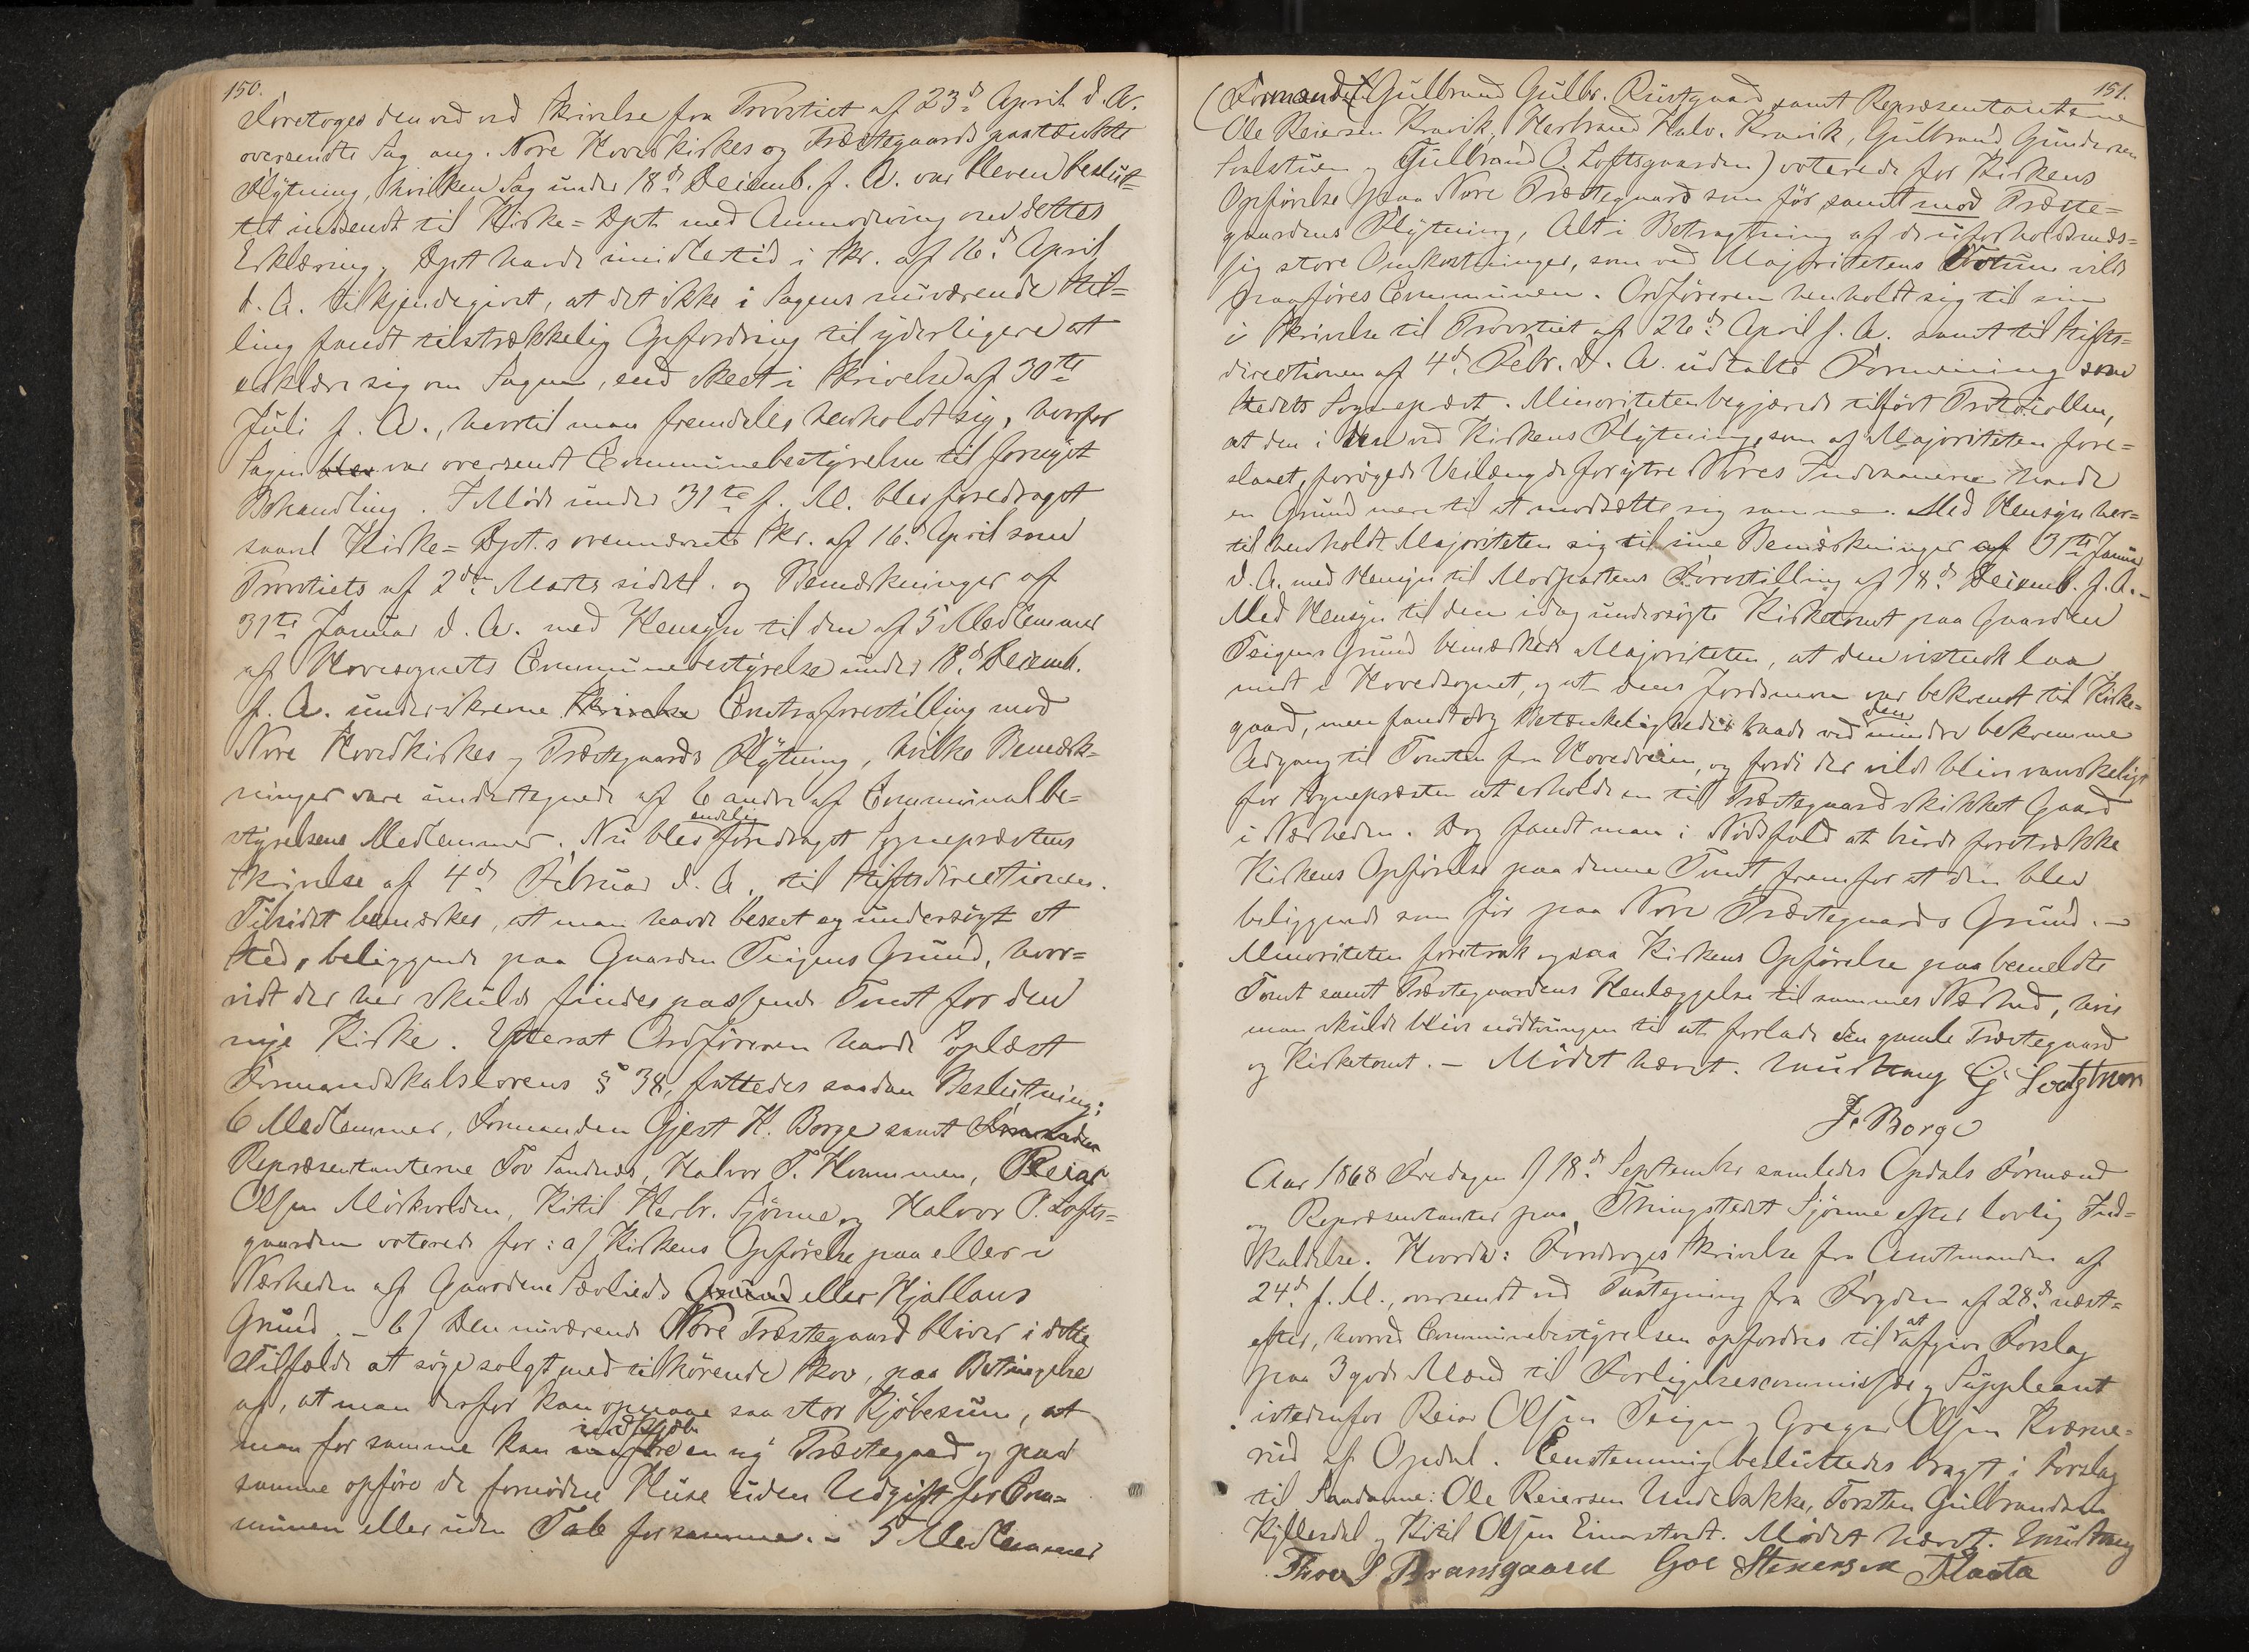 150.
Foretoges den ved ved Skrivelse fra Provstiet af 23d April d. A.
oversendte Sag ang. Nore Hovedkirkes og Præstegaards paatænkte
Flytning, hvilken Sag under 18d Decemb. f. A. var bleven beslut=
tet indsendt til Kirke=Dpt. med Anmodning om dettes
Erklæring. Dpt havde imidlertid i Skr. af 16d April
d. A. tilkjendegivet, at det ikke i Sagens nuværende Stil=
ling fandt tilstrækkelig Opfordring til yderligere at
erklære sig om Sagen, end skeet i Skrivelse af 30te
Juli f. A., hvortil man fremdeles henholdt sig, hvorfor
Sagen blev var oversendt Communebestyrelsen til fornyet
Behandling. I Møde under 31te f. M. blev foredraget
saavel Kirke=Dpt.s ovennævnte Skr. af 16d April som
Provstiets af 2den Marts sidstl. og Bemærkninger af
31te Januar d. A. med Hensyn til den af 5 Medlemmer
af Hovesognets Communebestyrelse under 18d Decemb.
f. A. underskrevne Skrivelse Contraforestilling mod
Nore Hovedkirkes og Præstegaards Flytning, hvilke Bemærk=
ninger vare undertegnede af 6 andre af Communalbe=
styrelsens Medlemmer. Nu blev endelig foredraget Sognepræstens
Skrivelse af 4d Februar d. A. til Stiftsdirectionen.
Tilsidst bemærkes, at man havde beseet og undersøgt et
Sted, beliggende paa Gaarden Teigens Grund, hvor=
vidt der her skulde findes passende Tomt for den
nye Kirke. Efterat Ordføreren havde oplæst
Formandskabslovens § 38, fattedes saadan Beslutning:
6 Medlemmer, Formanden Gjest H. Borge samt Formanden
Repræsentanterne Tov Sandnæs, Halvor T. Hvammen, Reiar
Olsen Mørkvolden, Kittil Herbr. Sjønne og Halvor P. Lofts=
gaarden voterede for: a) Kirkens Opførelse paa eller i
Nærheden af Gaardene Sevlieds Grund eller Hjallans
Grund. – b) Den nuværende Nore Præstegaard bliver i dette
Tilfælde at søge solgt med tilhørende Skov, paa Betingelse
af, at man derfor kan opnaae saa stor Kjøbesum, at
man for samme kan indkjøbe en ny Præstegaard og paa
samme opføre de fornødne Huse uden Udgift for Com=
munen eller uden Tab for samme. – 5 Medlemmer
151.
(Formanden Gulbrand Gulbr. Rustgaard samt Repræsentanterne
Ole Reiersen Kravik, Herbrand Halv. Kravik, Gulbrand Gundersen
og Gulbrand O. Loftsgaarden) voterede for Kirkens
Opførelse paa Nore Præstegaard som før, samt mod Præste=
gaardens Flytning, Alt i Betragtning af de uforholdsmæs=
sig store Omkostninger, som ved Majoritetens Votum vilde
paaføres Communen. Ordføreren henholdt sig til sin
i Skrivelse til Provstiet af 26d April f. A. samt til Stifts=
directionen af 4d Febr. d. A. udtalte Formening som
Stedets Sognepræst. Minoriteten begjærede tilført Protocollen,
at den i den ved Kirkens Flytning, som af Majoriteten fore=
slaaet, forøgede Veilængde for ytre Nores Indvaanere havde
en Grund mere til at modsætte sig samme. Med Hensyn her=
til henholdt Majoriteten sig til sine Bemærkninger af 31te Januar
d. A. med Hensyn til Modpartens Forestilling af 18d Decemb. f. A. –
Med Hensyn til den idag undersøgte Kirketomt paa Gaarden
Teigens Grund bemærkede Majoriteten, at den vistnok laa
midt i Hovedsognet, og at dens Jordsmon var bekvemt til Kirke=
gaard, men fandt dog Betænkeligheder baade ved den mindre bekvemme
Adgang til Tomten fra Hovedveien, og fordi det vilde blive vanskeligt
for Sognepræsten at erholde en til Præstegaard skikket Gaard
i Nærheden. Dog fandt man i Nødsfald at burde foretrække
Kirkens Opførelse paa denne Tomt fremfor at den blev
beliggende som før paa Nore Præstegaards Grund. –
Minoriteten foretrak ogsaa Kirkens Opførelse paa bemeldte
Tomt samt Præstegaardens Henlæggelse til sammes Nærhed, hvis
man skulde blive nødtvungen til at forlade den gamle Præstegaard
og Kirketomt. – Mødet hævet.
J. Borge
Aar 1868 Fredagen d 18d September samledes Opdals Formænd
og Repræsentanter paa Thingstedet Sjønne efter lovlig Ind=
kaldelse. Hvorda: Foredroges Skrivelse fra Amtmanden af
24d f. M., oversendt ved Paategning fra Fogden af 28d næst=
efter, hvorved Communebestyrelsen opfordres til at afgive Forslag
paa 3 gode Mænd til Forligelsescommissær og Suppleant
istedenfor Reiar Olsen Teigen og Gregar Olsen Kværne=
rud af Opdal. Eenstemmig besluttedes bragt i Forslag
til Saadanne: Ole Reiersen Underbakke, Torsten Gulbrandsen
Killerdal og Kitil Olsen Einarstvedt. Mødet hævet.
Thov S Bransgaard Goe Stenersen Flaata